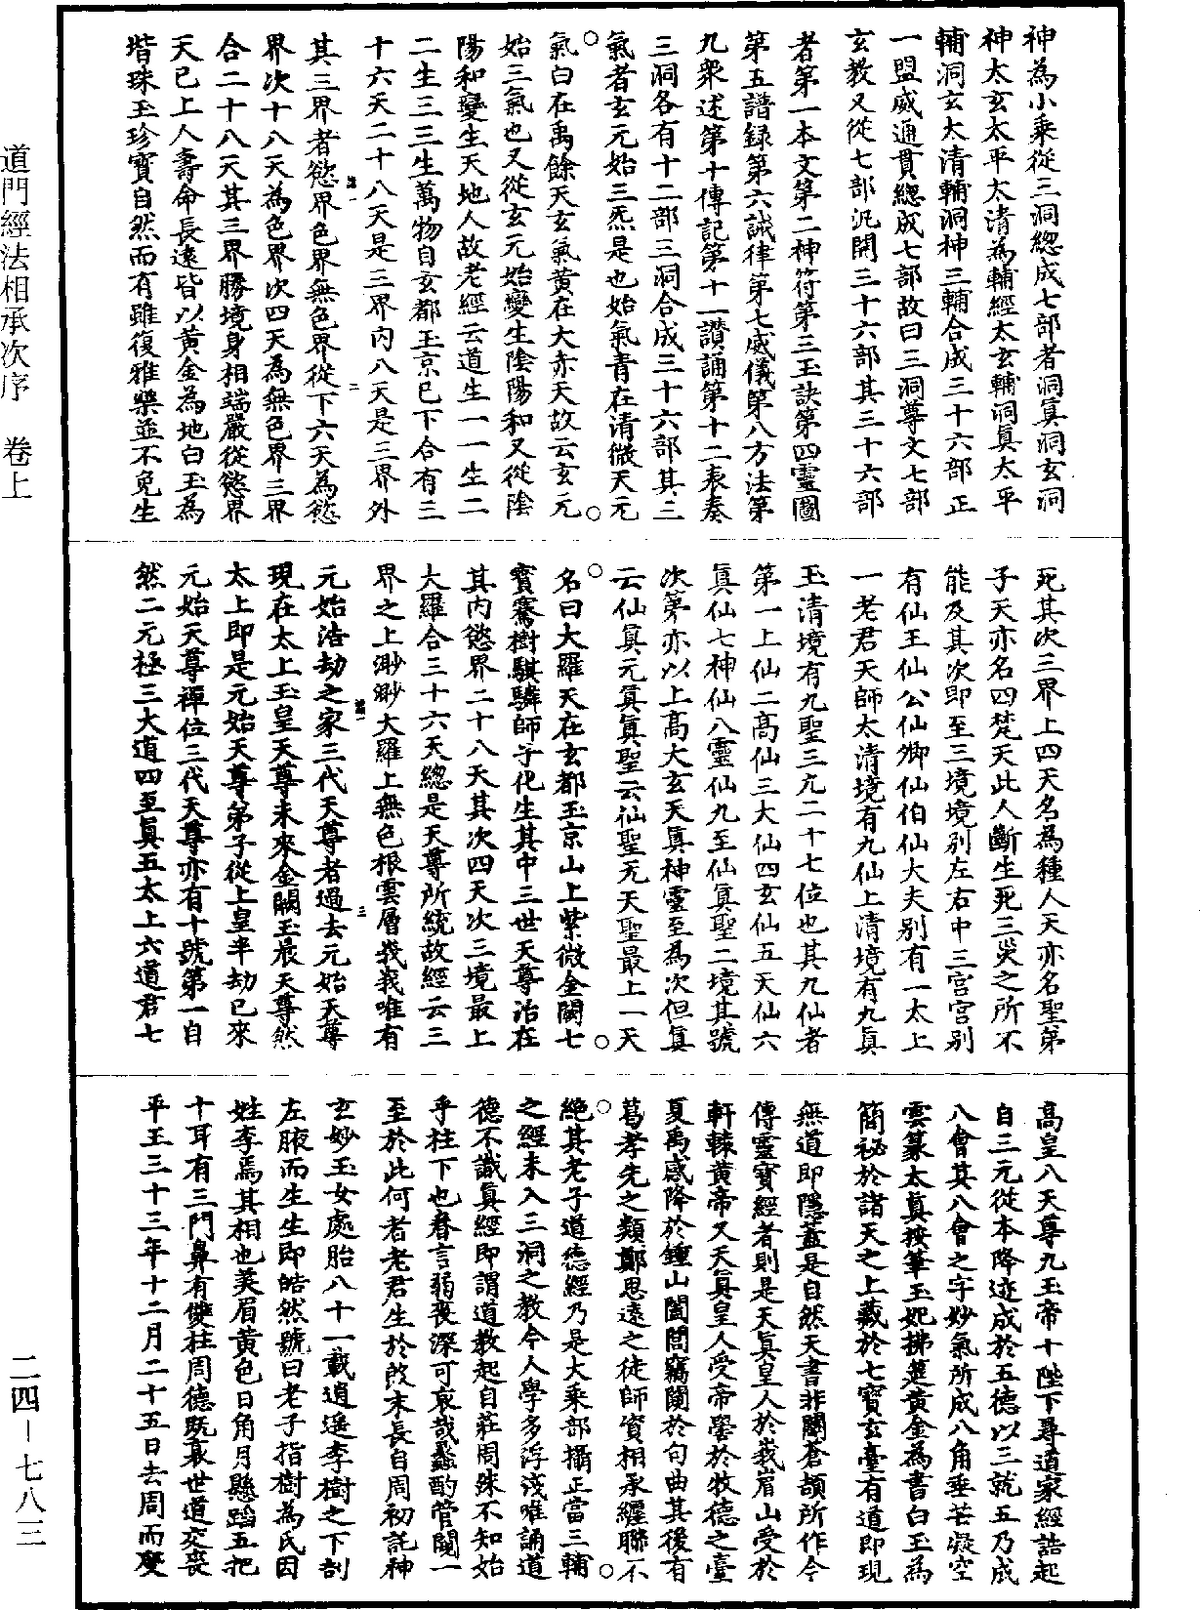 道門經法相承次序　卷上
神為小乘從三洞總成七部者洞真洞玄洞
神太玄太平太清為輔經太玄輔洞真太平
輔洞玄太清輔洞神三輔合成三十六部正
一盟威通貫總成七部故曰三洞尊文七部
玄教又從七部汎開三十六部其三十六部
者第一本文第二神符第三玉訣第四靈圖
第五譜録第六誡律第七威儀第八方法第
九衆述第十傳記第十一讃誦第十二表奏
三洞各有十二部三洞合成三十六部其三
氣者玄元始三炁是也始氣青在清微天元
氣白在禹餘天玄氣黃在大赤天故云玄元
始三氣也又從玄元始變生陰陽和又從陰
陽和變生天地人故老經云道生一一生二
二生三三生萬物自玄都玉京已下合有三
十六天二十八天是三界内八天是三界外
其三界者慾界色界無色界從下六天為慾
界次十八天為色界次四天為無色界三界
合二十八天其三界勝境身相端嚴從慾界
天已上人壽命長遠皆以黃金為地白玉為
堦珠玉珍寶自然而有雖復雅樂並不免生
死其次三界上四天名為種人天亦名聖第
子天亦名四梵天此人斷生死三災之所不
能及其次即至三境境別左右中三宮宮別
有仙王仙公仙卿仙伯仙大夫別有一太上
一老君天師太清境有九仙上清境有九真
玉清境有九聖三九二十七位也其九仙者
第一上仙二高仙三大仙四玄仙五天仙六
真仙七神仙八靈仙九至仙真聖二境其號
次第亦以上高大玄天真神靈至為次但真
云仙真元真真聖云仙聖无天聖最上一天
名曰大羅天在玄都玉京山上紫微金闕七
寶騫樹騏驎師子化生其中三世天尊治在
其内慾界二十八天其次四天次三境最上
大羅合三十六天總是天尊所統故經云三
界之上渺渺大羅上無色根雲層峩峩唯有
元始浩劫之家三代天尊者過去元始天尊
現在太上玉皇天尊未來金闕玉晨天尊然
太上即是元始天尊弟子從上皇半劫已來
元始天尊禪位三代天尊亦有十號第一自
然二元極三大道四至真五太上六道君七
高皇八天尊九玉帝十陛下尋道家經誥起
自三元從本降迹成於五德以三就五乃成
八會其八會之字妙氣所成八角垂芒凝空
雲篆太真按筆玉妃拂筵黃金為書白玉為
簡秘於諸天之上藏於七寶玄臺有道即現
無道即隱蓋是自然天書非關蒼頡所作今
傳靈寶經者則是天真皇人於峩眉山受於
軒轅黃帝又天真皇人受帝嚳於牧德之臺
夏禹感降於鍾山闔閭竊闚於句曲其後有
葛孝先之類鄭思遠之徒師資相承纒聯不
絕其老子道德經乃是大乘部攝正當三輔
之經未入三洞之教今人學多浮淺唯誦道
德不識真經即謂道教起自莊周殊不知始
乎柱下也眷言弱喪深可哀哉蠡酌管闚一
至於此何者老君生於殷末長自周初託神
玄妙玉女處胎八十一載逍遥李樹之下剖
左腋而生生即皓然號曰老子指樹為氏因
姓李焉其相也美眉黃色日角月懸蹈五把
十耳有三門鼻有雙柱周德既衰世道交喪
平王三十三年十二月二十五日去周而度
二四－七八三